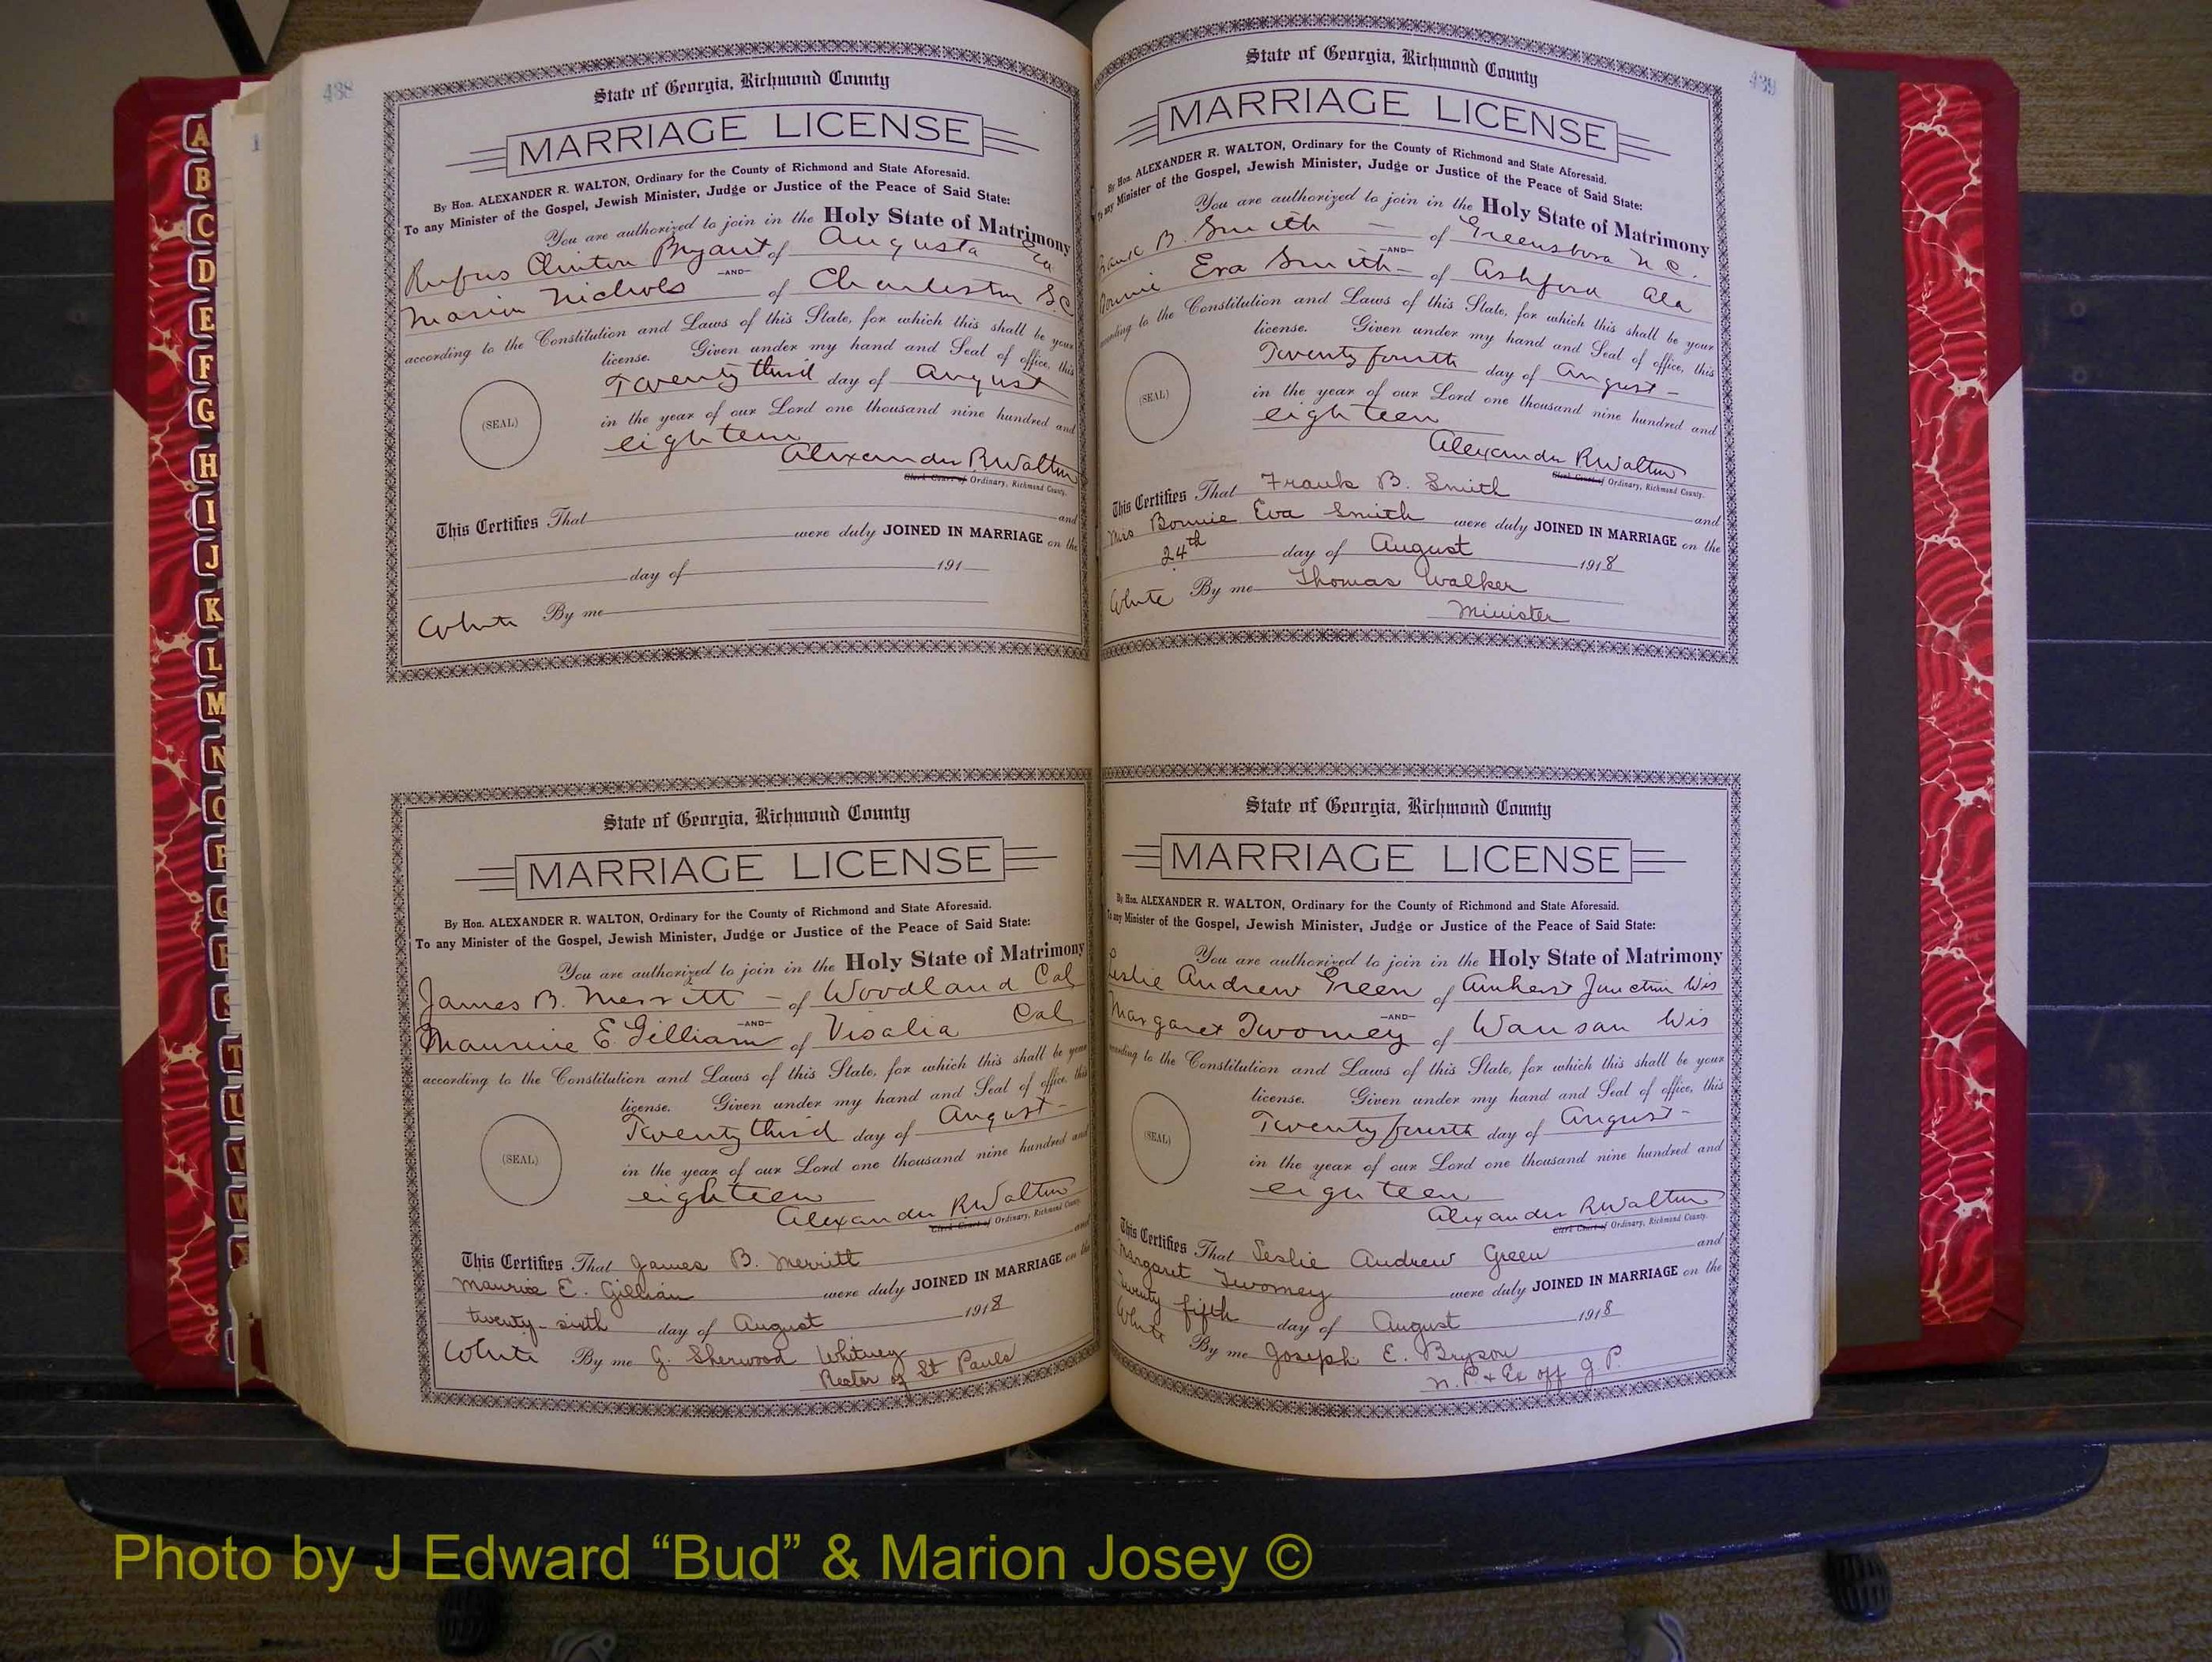 438
State of Georgia, Richmond County
MARRIAGE LICENSE
By Hon. ALEXANDER R. WALTON, Ordinary for the County of Richmond and State Aforesaid.
To any Minister of the Gospel, Jewish Minister, Judge or Justice of the Peace of Said State:
You are authorized to join in the Holy State of Matrimony
Rufus Clinton Bryant of Augusta Ga
—AND—
Marion Nichols of Charleston S.C
according to the Constitution and Laws of this State, for which this shall be your
license. Given under my hand and Seal of office, this
Twenty third day of August
(SEAL)
in the year of our Lord one thousand nine hundred and
eighteen
Alexander R Walton
Clerk Court of Ordinary, Richmond County.
This Certifies That and
were duly JOINED IN MARRIAGE on the
day of 191
White By me
State of Georgia, Richmond County
MARRIAGE LICENSE
By Hon. ALEXANDER R. WALTON, Ordinary for the County of Richmond and State Aforesaid.
To any Minister of the Gospel, Jewish Minister, Judge or Justice of the Peace of Said State:
You are authorized to join in the Holy State of Matrimony
James B. Merritt - of Woodland Cal
—AND—
E. Gilliam of Visalia Cal
according to the Constitution and Laws of this State, for which this shall be your
license. Given under my hand and Seal of office, this
Twenty third day of August -
(SEAL)
in the year of our Lord one thousand nine hundred and
eighteen
Alexander R Walton
Clerk Court of Ordinary, Richmond County.
This Certifies That James B. Merritt and
Maurice E. Gillian were duly JOINED IN MARRIAGE on the
twenty-sixth day of August 1918
White By me G. Sherwood Whitney
Rector of St Pauls
439
State of Georgia, Richmond County
MARRIAGE LICENSE
By Hon. ALEXANDER R. WALTON, Ordinary for the County of Richmond and State Aforesaid.
To any Minister of the Gospel, Jewish Minister, Judge or Justice of the Peace of Said State:
You are authorized to join in the Holy State of Matrimony
B. Smith - of Greensboro N.C.
—AND—
Bonnie Eva Smith - of Ashford Ala
according to the Constitution and Laws of this State, for which this shall be your
license. Given under my hand and Seal of office, this
Twenty fourth day of August -
(SEAL)
in the year of our Lord one thousand nine hundred and
eighteen
Alexander R Walton
Clerk Court of Ordinary, Richmond County.
This Certifies That Frank B. Smith and
Miss Bonnie Eva Smith were duly JOINED IN MARRIAGE on the
24th day of August 1918
White By me Thomas Walker
Minister
State of Georgia, Richmond County
MARRIAGE LICENSE
By Hon. ALEXANDER R. WALTON, Ordinary for the County of Richmond and State Aforesaid.
To any Minister of the Gospel, Jewish Minister, Judge or Justice of the Peace of Said State:
You are authorized to join in the Holy State of Matrimony
Leslie Andrew Green of Amherst Junction Wis
—AND—
Margaret Twomey of Wausau Wis
according to the Constitution and Laws of this State, for which this shall be your
license. Given under my hand and Seal of office, this
Twenty fourth day of August -
(SEAL)
in the year of our Lord one thousand nine hundred and
eighteen
Alexander R Walton
Clerk Court of Ordinary, Richmond County.
This Certifies That Leslie Andrew Green and
Margaret Twomey were duly JOINED IN MARRIAGE on the
Twenty fifth day of August 1918
White By me Joseph E. Bryson
N. P. & Ex off J. P.
A
B
C
D
E
F
G
H
I
J
K
L
M
N
O
P
Q
R
S
T
U
V
W
Photo by J Edward “Bud” & Marion Josey ©